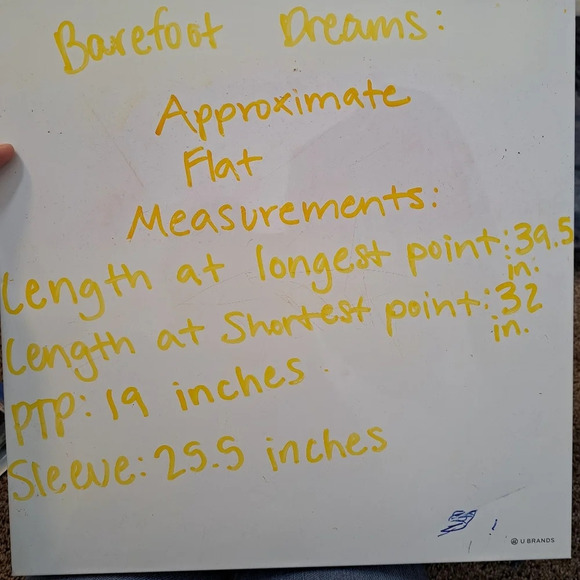 Barefoot Dreams:
Approximate
Flat
Measurements:
Length at longest point: 39.5
in.
Length at Shortest point: 32
in.
PTP: 19 inches
Sleeve: 25.5 inches
U BRANDS